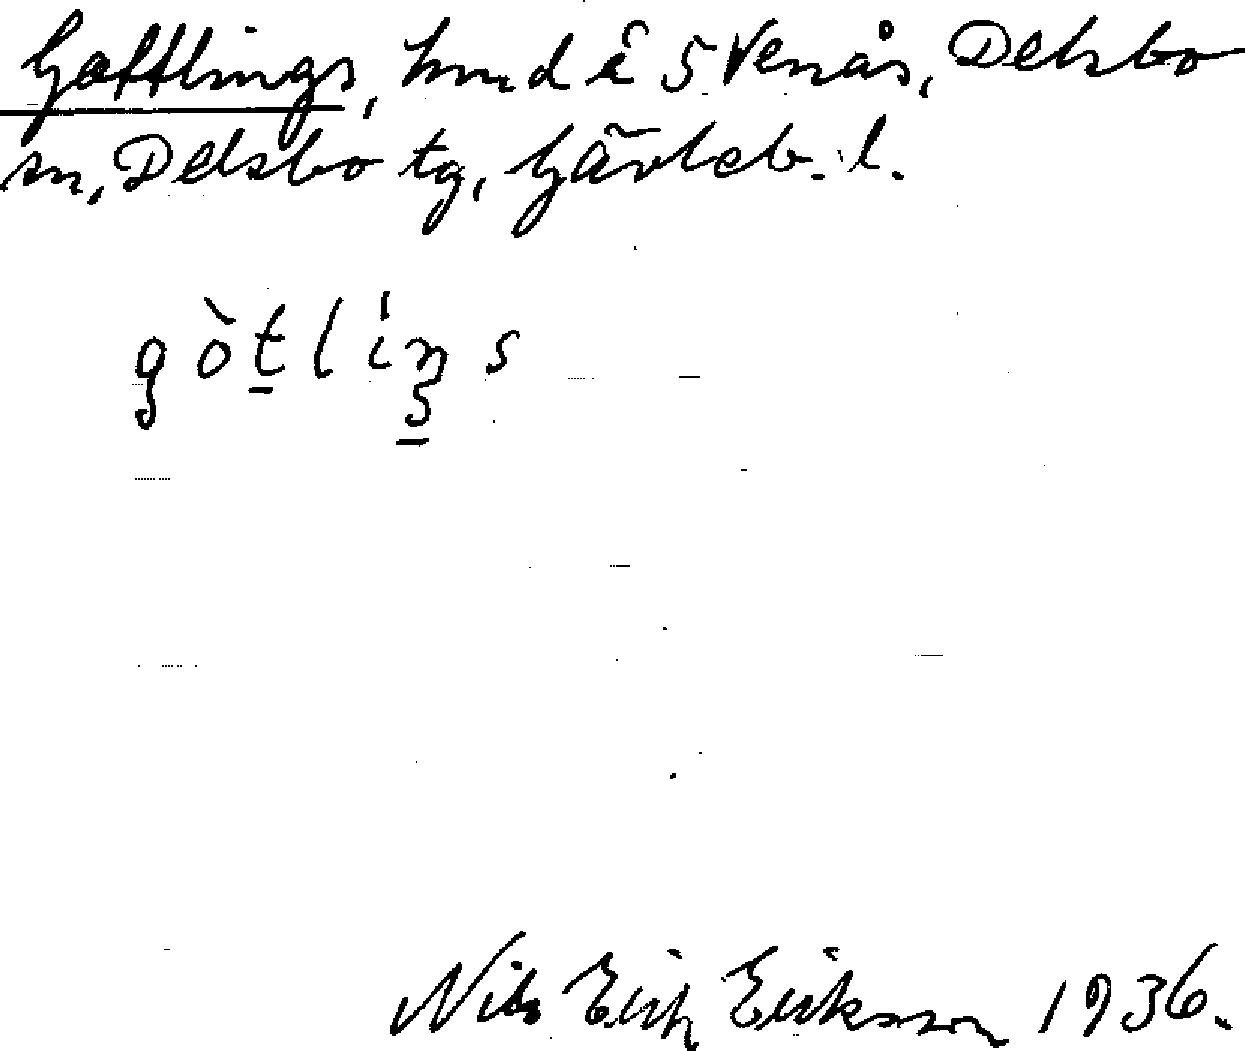 Gottlings, hmd å 5 Venås, Delsbo
sn, Delsbo tg, Gävleb. l.
gòtlíŋs
Nils Erik Eriksson 1936.